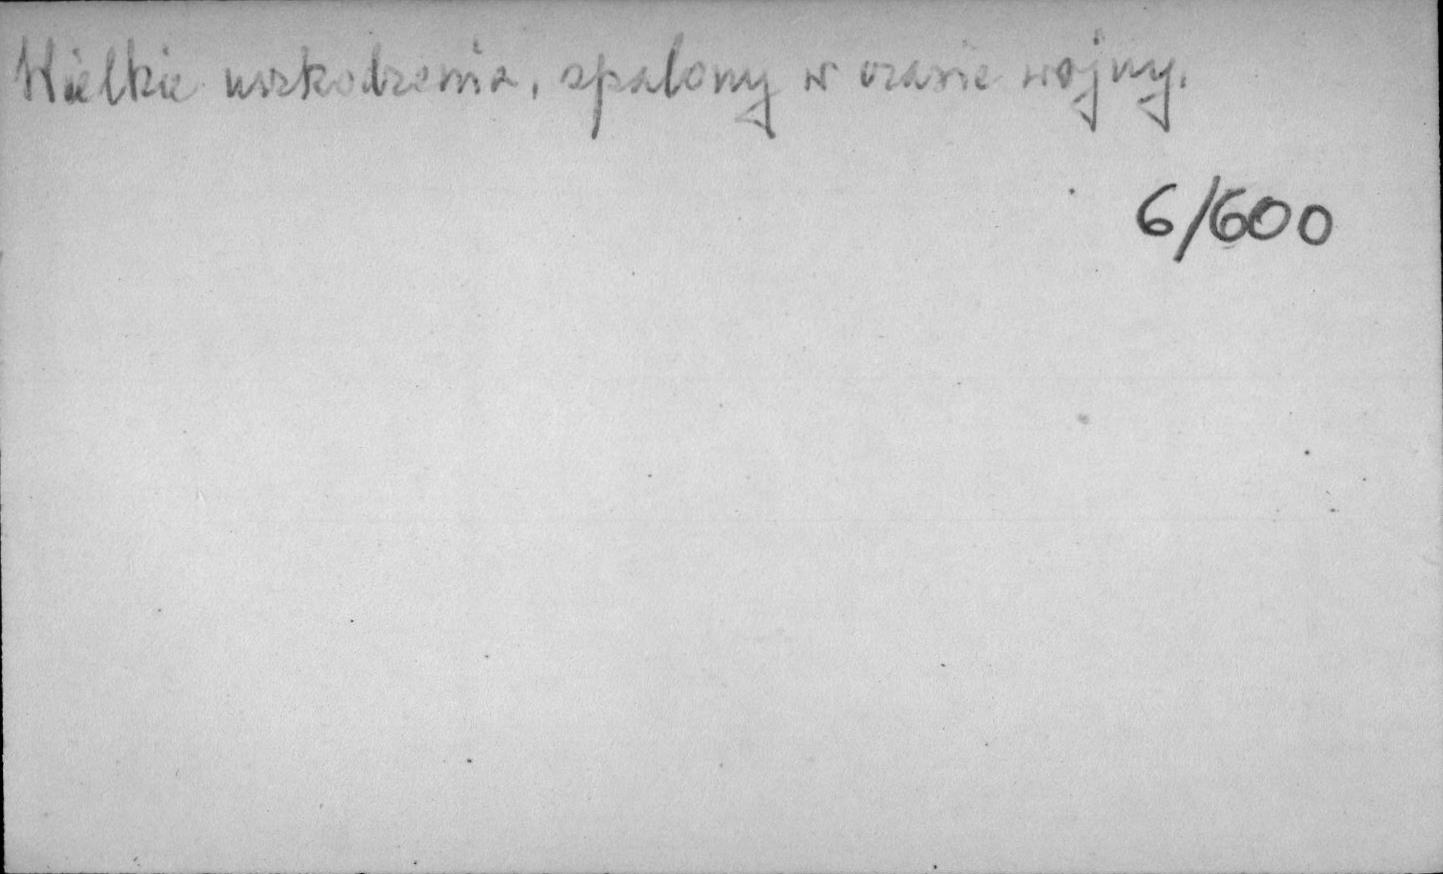 Wielkie uszkodzenia, spalony w czasie wojny.
6/600